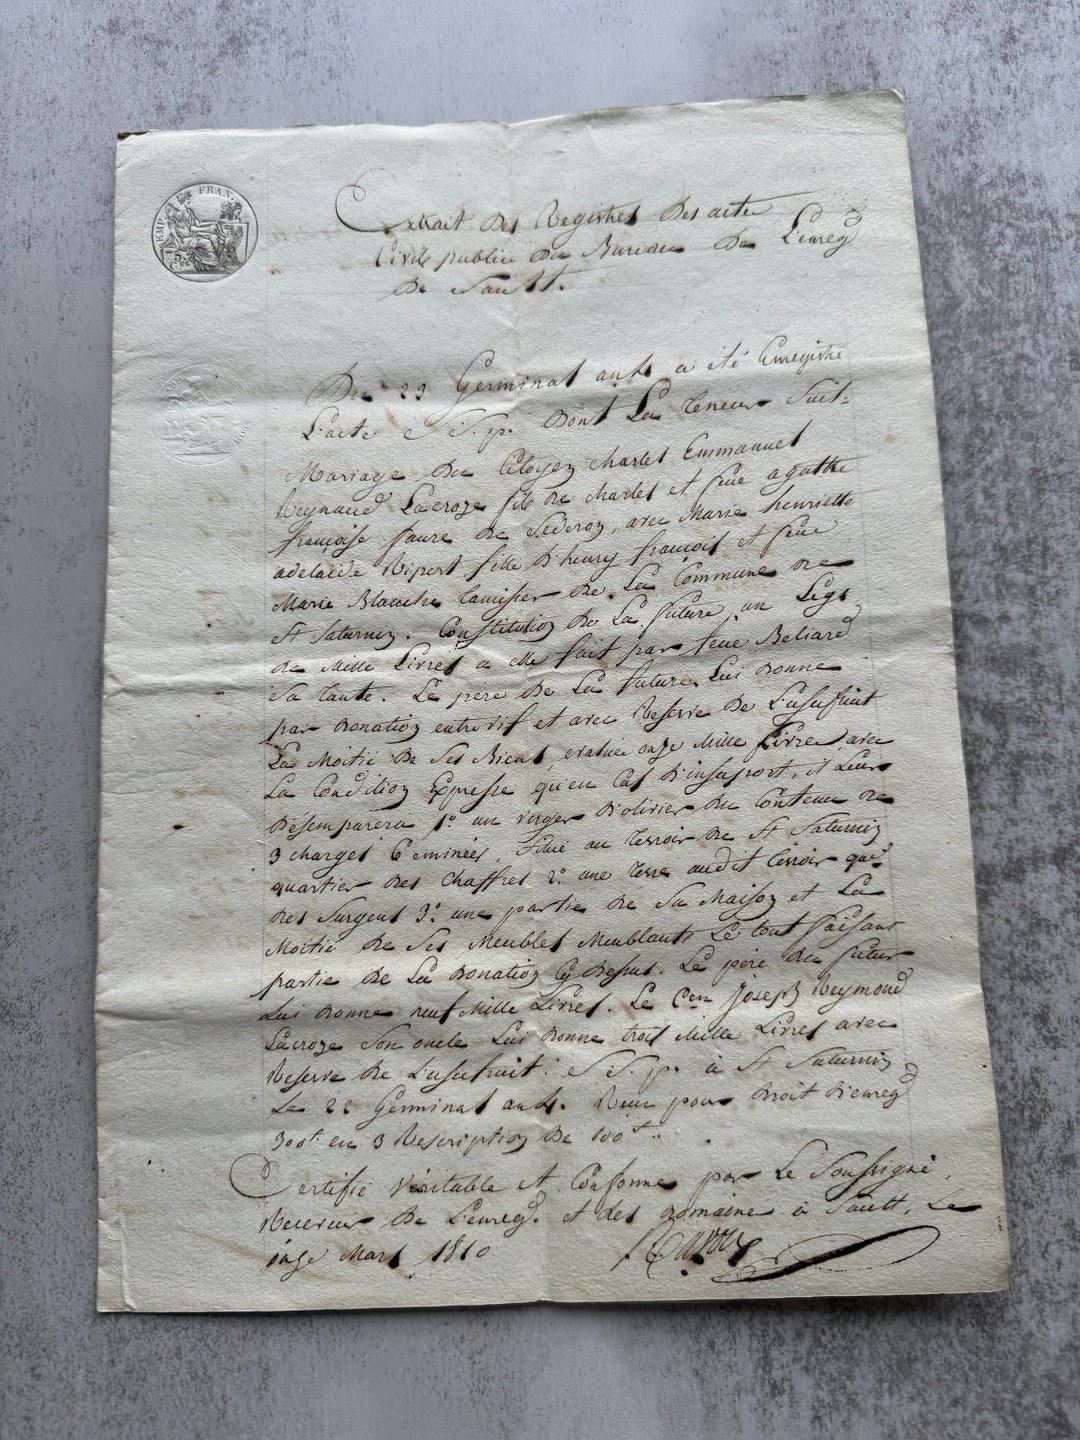 EMP. FRAN.
75 Ces
Extrait des Registres des acte
Civils publics du Bureau de L'enregd
de Sault.
Du 29 Germinal an 4. a été Enregistré
L'acte S S. p. Dont La teneur Suit
Mariage du Citoyen Charles Emmanuel
Reynaud Lacroze fils de Charles et feüe agathe
françoise faure de Sederon, avec Marie henriette
adelaide Ripert fille d'henry françois et feüe
Marie Blanche tamisier de La Commune de
St Saturnin. Constitution de La future un Legs
de Mille Livres a elle fait par feüe Beliard
Sa tante. Le père de La future Lui donne
par donation entrevif et avec Reserve de L'usufruit
La Moitié de Ses Biens, evalué onze Mille Livres avec
La Condition Expresse qu'en Cas d'insuport, il Leur
Désemparera 1º. un verger d'olivier du Contenu de
3 charges 6 eminées, Situé au terroir de St Saturnin
quartier des Chaffres 2º. une terre audit terroir qer
des Surgens 3º. une partie de Sa Maison et La
Moitié de Ses Meubles Meublants Le tout faisant
partie de La donation Cy Dessus. Le père du futur
Lui donne neuf Mille Livres. Le Cen Joseph Reymond
Lacroze Son oncle Lui donne trois Mille Livres avec
Reserve de L'usufruit. S S. p. à St Saturnin
Le 22 Germinal an 4. Reçu pour droit d'enregd
300# en 3 Rescription de 100#
Certifié Véritable et Conforme par Le Soussigné
Receveur de L'enregd. et des domaine à Sault, Le
onze Mars 1810